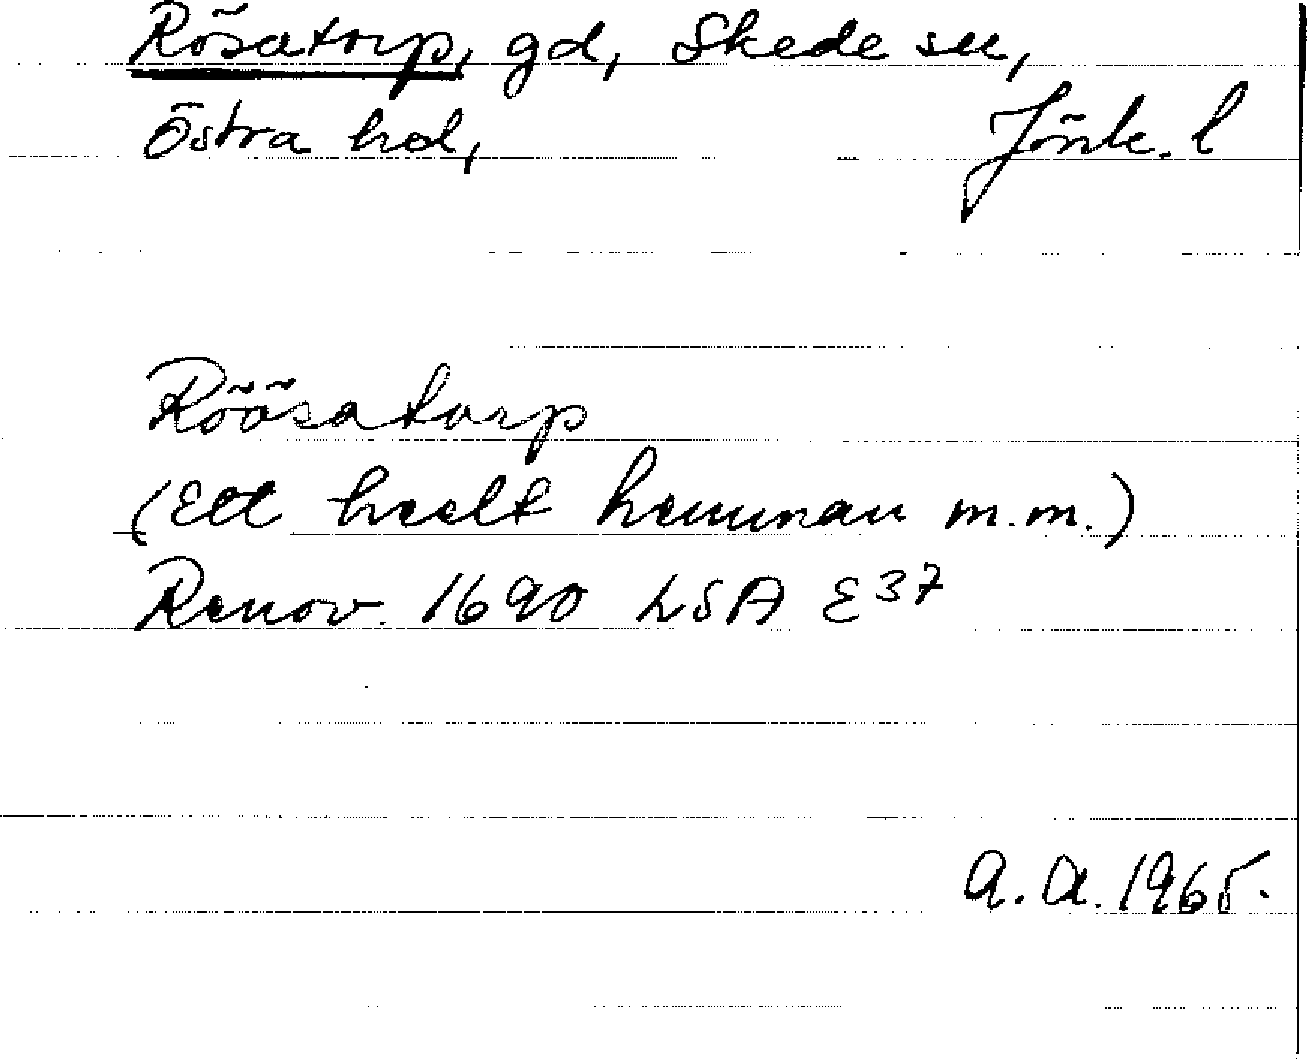 Rösatorp, gd, Skede sn,
Östra hd, Jönk. l
Röösatorp
(Ett heelt hemman m.m.)
Renov. 1690 LSA E37
A.A. 1965.